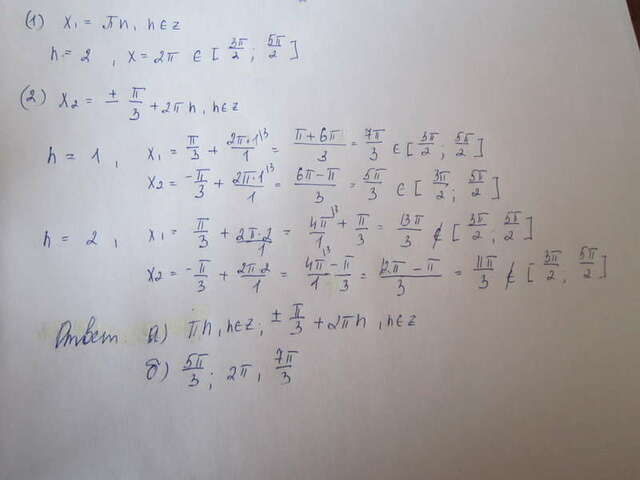 (1) x₁ = πn, n∈z
n = 2, x = 2π ∈ [3π/2; 5π/2]
(2) x₂ = ± π/3 + 2πn, n∈z
n = 1, x₁ = π/3 + 2π·1/1 ⁽³ = π+6π/3 = 7π/3 ∈ [3π/2; 5π/2]
x₂ = -π/3 + 2π·1/1 ⁽³ = 6π-π/3 = 5π/3 ∈ [3π/2; 5π/2]
n = 2, x₁ = π/3 + 2π·2/1 = 4π/1 ⁽³ + π/3 = 13π/3 ∉ [3π/2; 5π/2]
x₂ = -π/3 + 2π·2/1 = 4π/1 ⁽³ - π/3 = 12π-π/3 = 11π/3 ∉ [3π/2; 5π/2]
Ответ: а) πn, n∈z; ± π/3 + 2πn, n∈z
б) 5π/3; 2π, 7π/3